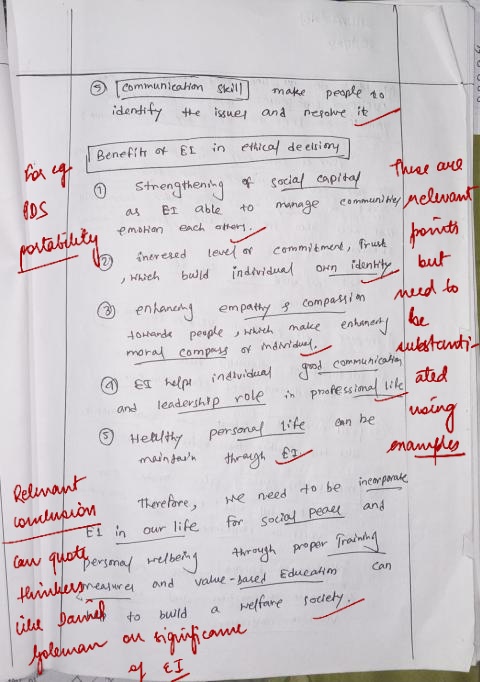 ⑤ Communication skill make people to
identify the issues and resolve it
Benefits of EI in ethical decision
① Strengthening of social capital
as EI able to manage communities
emotion each others.
② incresed level of commitment, trust
, which build individual own identity
③ enhancing empathy & compassion
towards people, which make enhancing
moral compass of individual.
④ EI helps individual good communication
and leadership role in professional life
⑤ Healthy personal life can be
maintain through EI.
Therefore, we need to be incorporate
EI in our life for social peace and
personal welbeing through proper Training
measures and value-based Education can
to build a welfare society.
For eg
PDS
portability
These are
relevant
points
but
need to
be
substanti-
ated
using
examples
Relevant
conclusion
can quote
thinkers
like Daniel
Goleman on significance
of EI